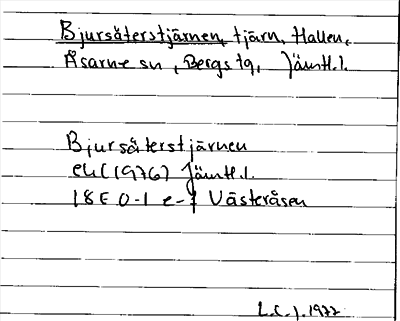 Bjursåterstjärnen, tjärn, Hallen,
Åsarne sn, Bergs tg, Jämtl.l.
Bjursåterstjärnen
ek (1976) Jämtl.l.
18E 0-1 e-f Västeråsen
L.C.J. 1977